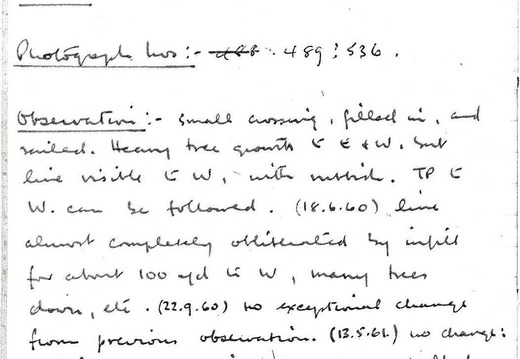 Photograph Nos:- 488. 489: 536.
Observation:- Small crossing, filled in, and
railed. Heavy tree growth to E & W. but
line visible to W, with rubbish. TP to
W. can be followed. (18.6.60) line
almost completely obliterated by infill
for about 100 yd to W, many trees
down, etc. (22.9.60) no exceptional change
from previous observation. (13.5.61.) no change: